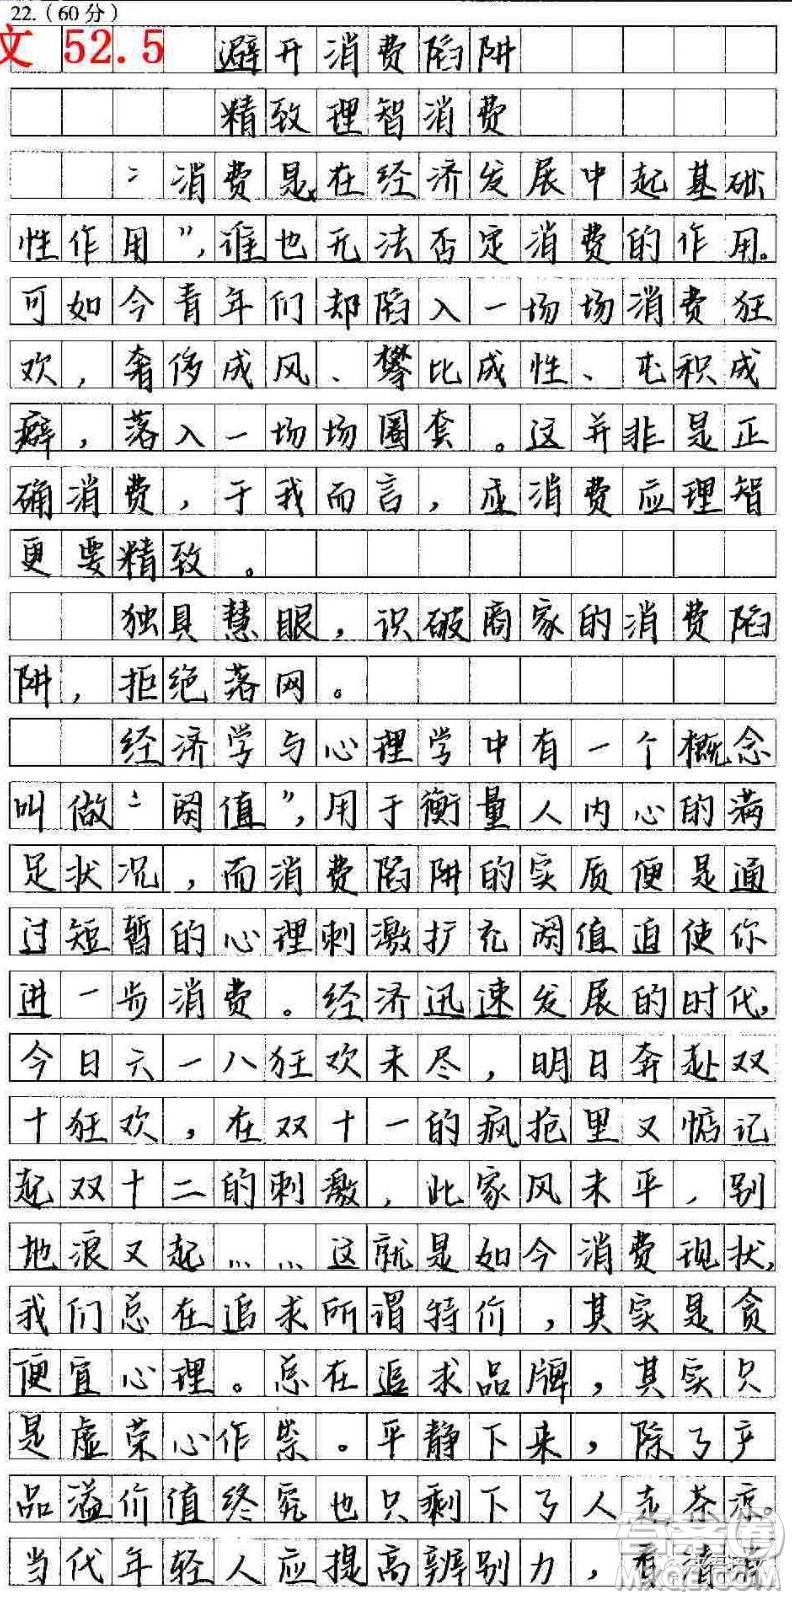 22.（60分）
文 52.5
避开消费陷阱
精致理智消费
“消费是在经济发展中起基础
性作用”，谁也无法否定消费的作用。
可如今青年们却陷入一场场消费狂
欢，奢侈成风、攀比成性、屯积成
癖，落入一场场圈套。这并非是正
确消费，于我而言，应消费应理智
更要精致。
独具慧眼，识破商家的消费陷
阱，拒绝落网。
经济学与心理学中有一个概念
叫做“阈值”，用于衡量人内心的满
足状况，而消费陷阱的实质便是通
过短暂的心理刺激扩充阈值迫使你
进一步消费。经济迅速发展的时代，
今日六一八狂欢未尽，明日奔赴双
十狂欢，在双十一的疯抢里又惦记
起双十二的刺激，此家风未平，别
地浪又起……这就是如今消费现状，
我们总在追求所谓特价，其实是贪
便宜心理。总在追求品牌，其实只
是虚荣心作祟。平静下来，除了产
品溢价值终究也只剩下了人走茶凉。
当代年轻人应提高辨别力，看清